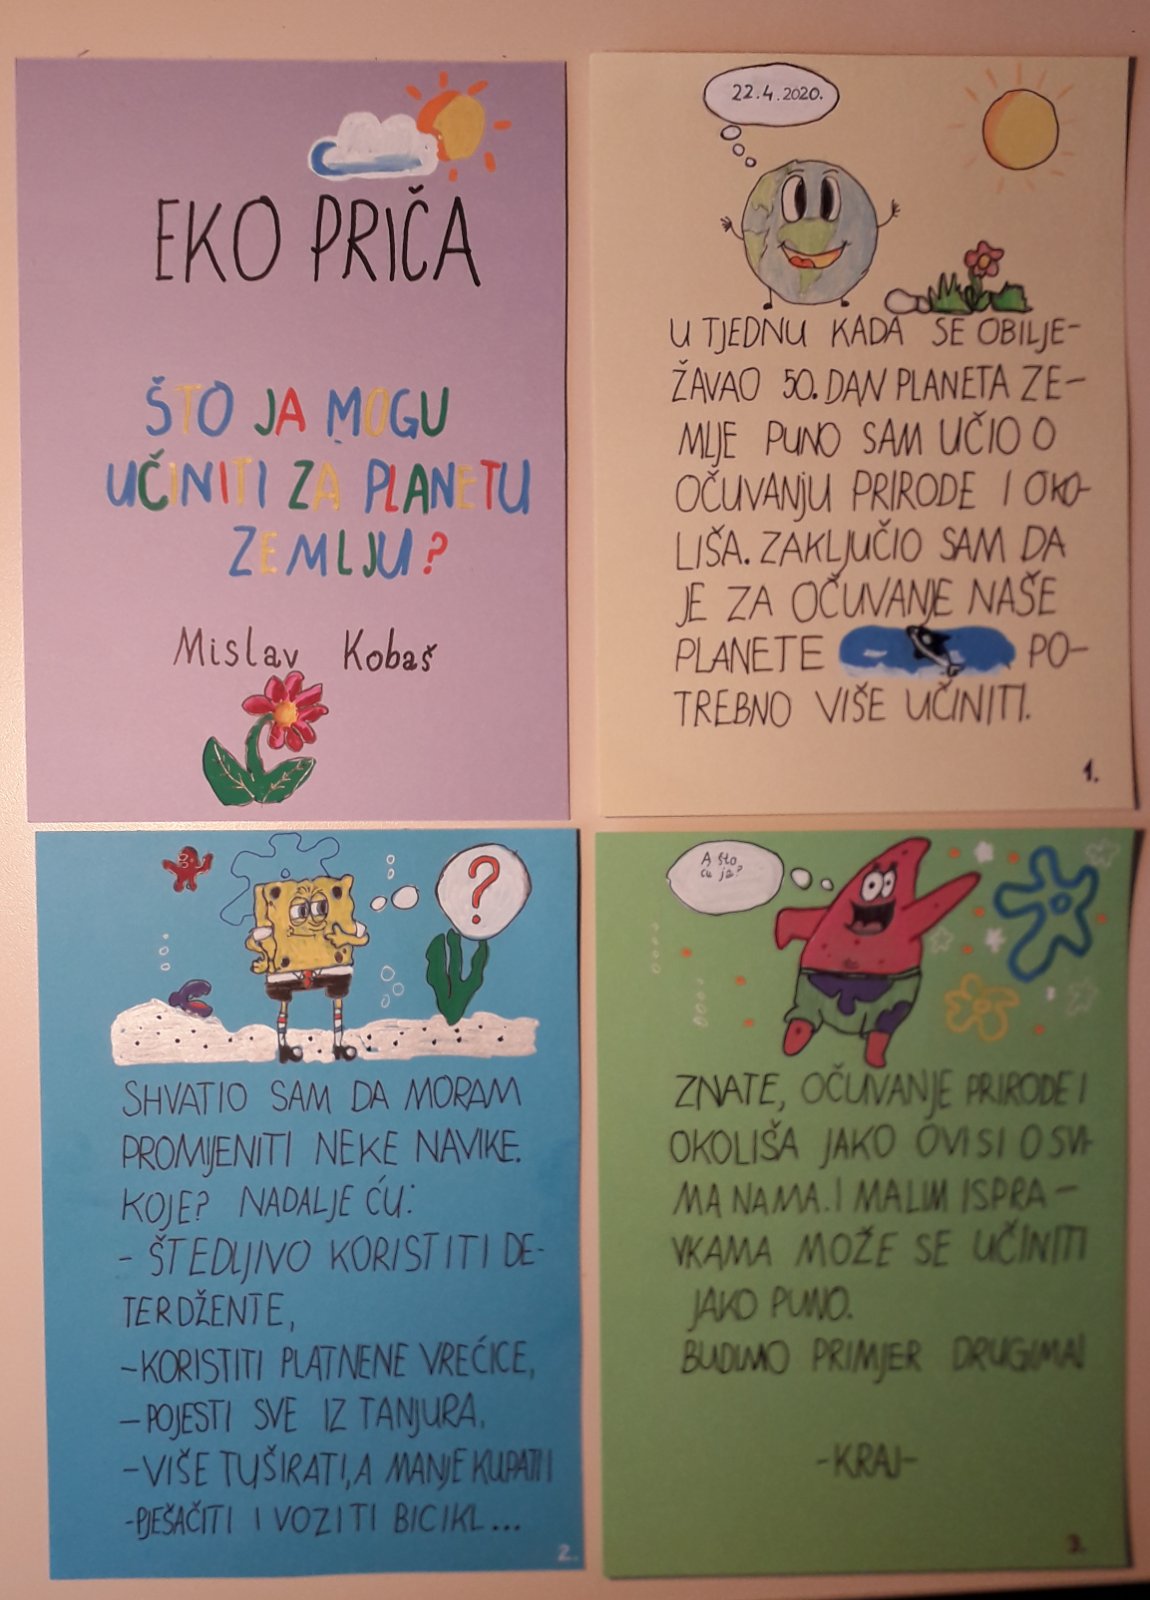 EKO PRIČA
ŠTO JA MOGU
UČINITI ZA PLANETU
ZEMLJU?
Mislav Kobaš
22.4.2020.
U TJEDNU KADA SE OBILJE-
ŽAVAO 50. DAN PLANETA ZE-
MLJE PUNO SAM UČIO O
OČUVANJU PRIRODE I OKO-
LIŠA. ZAKLJUČIO SAM DA
JE ZA OČUVANJE NAŠE
PLANETE PO-
TREBNO VIŠE UČINITI.
1.
?
SHVATIO SAM DA MORAM
PROMIJENITI NEKE NAVIKE.
KOJE? NADALJE ĆU:
- ŠTEDLJIVO KORISTITI DE-
TERDŽENTE,
-KORISTITI PLATNENE VREĆICE,
-POJESTI SVE IZ TANJURA,
-VIŠE TUŠIRATI, A MANJE KUPATI
-PJEŠAČITI I VOZITI BICIKL...
2.
A što
ću ja?
ZNATE, OČUVANJE PRIRODE I
OKOLIŠA JAKO OVISI O SVI-
MA NAMA. I MALIM ISPRA-
VKAMA MOŽE SE UČINITI
JAKO PUNO.
BUDIMO PRIMJER DRUGIMA!
-KRAJ-
3.